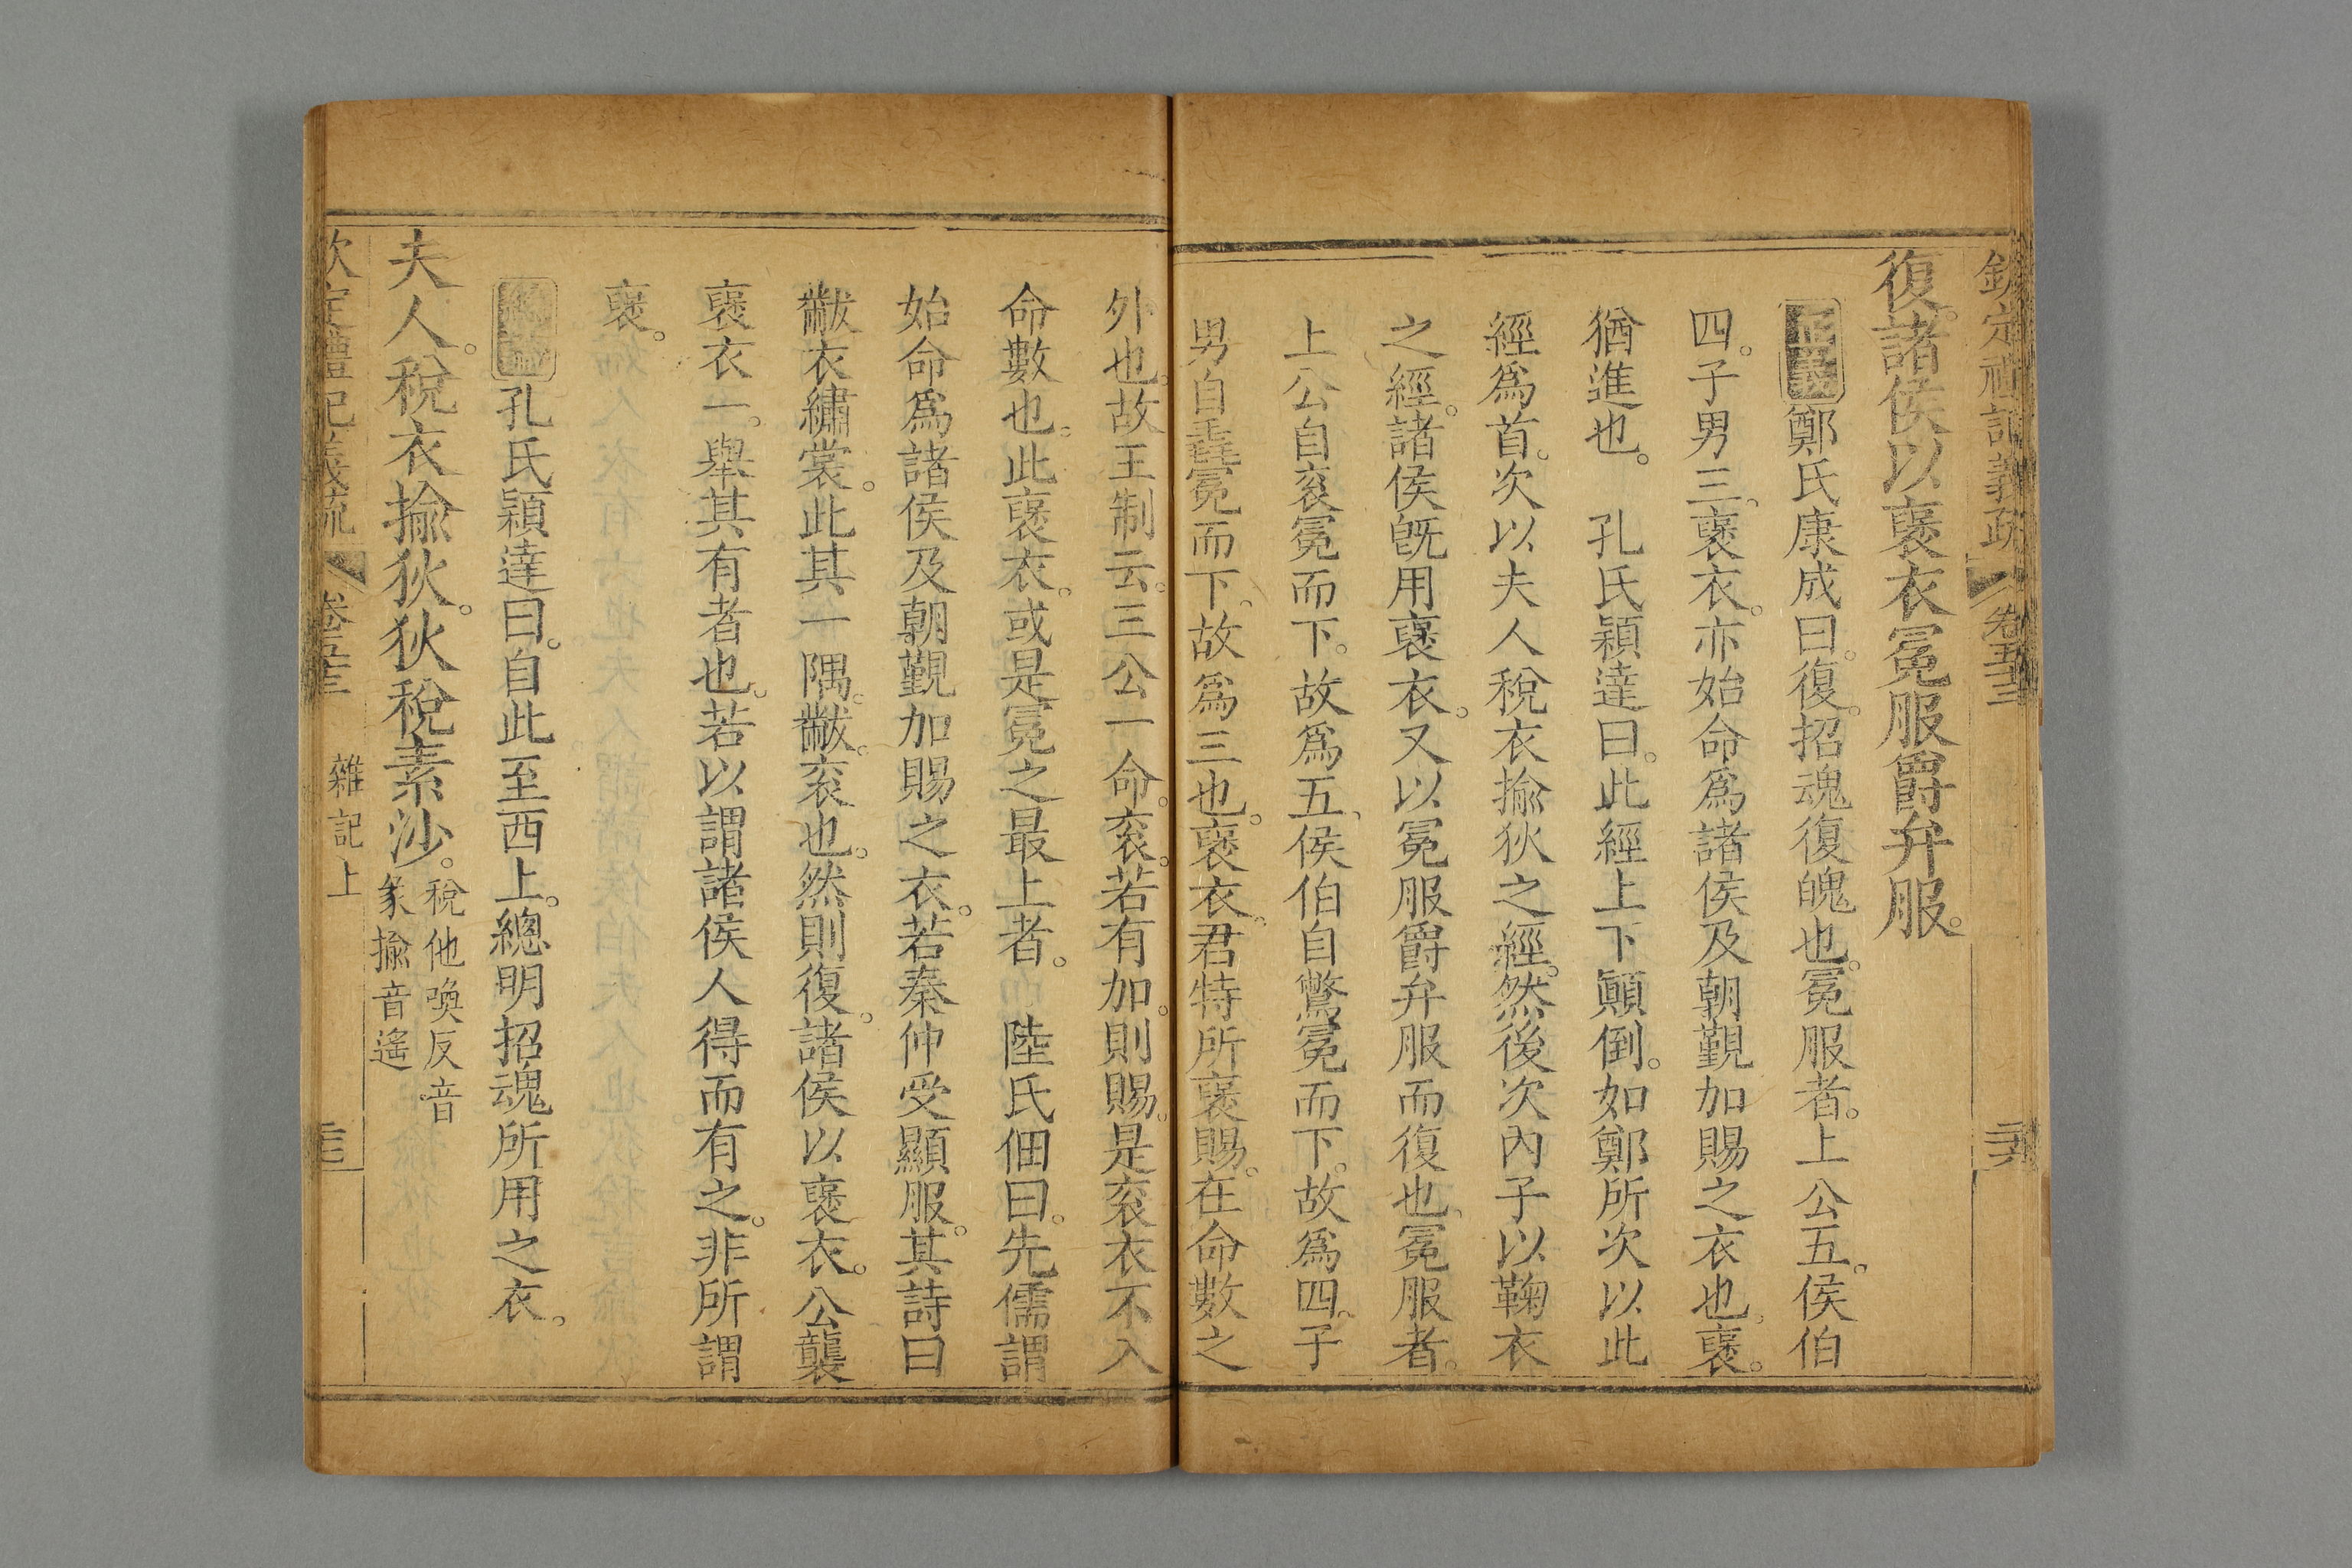 欽定禮記義疏 卷五十三 二六
復諸侯以襃衣冕服爵弁服。
正義 鄭氏康成曰。復。招魂復魄也。冕服者。上公五。侯伯
四。子男三。襃衣。亦始命爲諸侯及朝覲加賜之衣也。襃。
猶進也。 孔氏穎達曰。此經上下顚倒。如鄭所次以此
經爲首。次以夫人稅衣揄狄之經。然後次內子以鞠衣
之經。諸侯旣用襃衣。又以冕服爵弁服而復也。冕服者。
上公自衮冕而下。故爲五、侯伯自鷩冕而下。故爲四。子
男自毳冕而下。故爲三也。襃衣。君特所襃賜。在命數之
外也。故王制云。三公一命衮。若有加。則賜。是衮衣不入
命數也。此襃衣。或是冕之最上者。 陸氏佃曰。先儒謂
始命爲諸侯及朝覲加賜之衣。若秦仲受顯服。其詩曰
黻衣繡裳。此其一隅。黻。衮也。然則復。諸侯以襃衣。公襲
襃衣一。舉其有者也。若以謂諸侯人得而有之。非所謂
襃。
總論 孔氏穎達曰。自此至西上。總明招魂所用之衣。
夫人。稅衣揄狄。狄稅素沙。稅他喚反音
彖揄音遙
欽定禮記義疏 卷五十三 雜記上